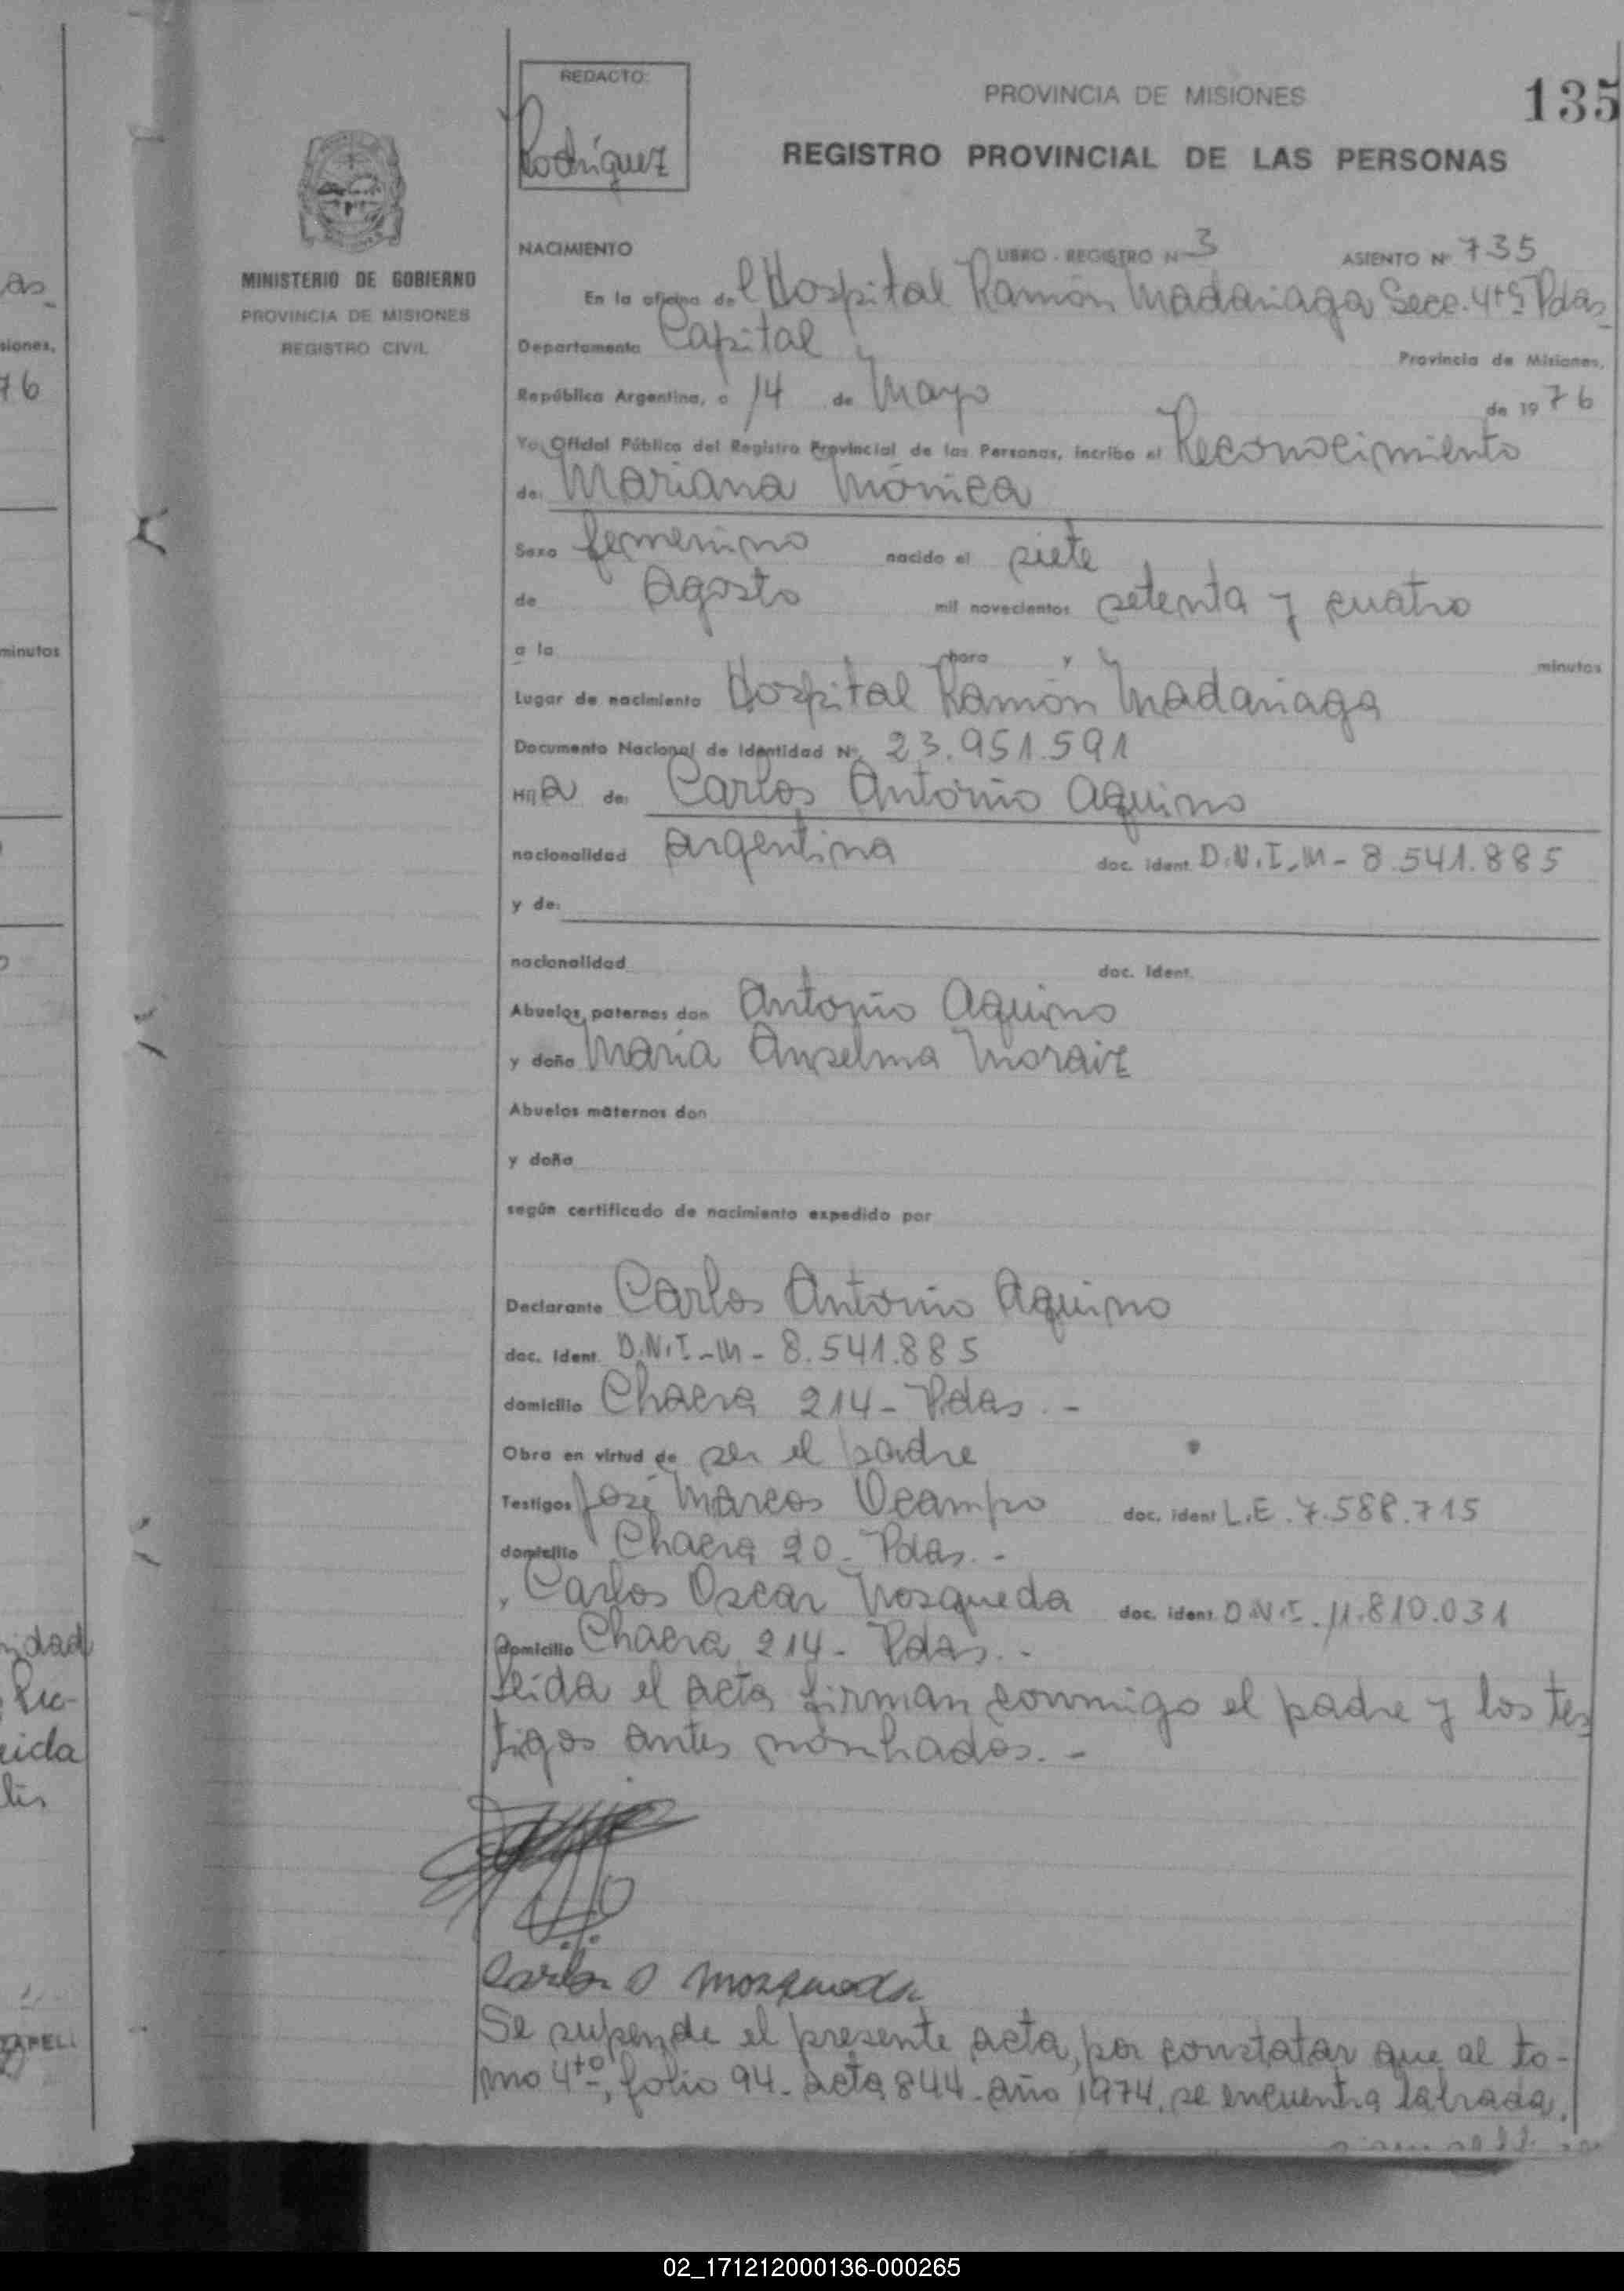 REDACTO:
Rodríguez
PROVINCIA DE MISIONES
135
REGISTRO PROVINCIAL DE LAS PERSONAS
MINISTERIO DE GOBIERNO
PROVINCIA DE MISIONES
REGISTRO CIVIL
NACIMIENTO LIBRO - REGISTRO Nº 3 ASIENTO Nº 735
En la oficina del Hospital Ramón Madariaga Secc. 4ta Pdas
Departamento Capital Provincia de Misiones,
República Argentina, a 14 de Mayo de 1976
Yo, Oficial Público del Registro Provincial de las Personas, incribo el Reconocimiento
de: Mariana Mónica
Sexo femenino nacido el siete
de Agosto mil novecientos setenta y cuatro
a la hora y minutos
Lugar de nacimiento Hospital Ramón Madariaga
Documento Nacional de Identidad Nº 23.951.591
Hija de: Carlos Antonio Aquino
nacionalidad argentina doc. ident. D.N.I.M- 8.541.885
y de:
nacionalidad doc. ident.
Abuelos paternos don Antonio Aquino
y doña María Anselma Moraiz
Abuelos maternos don
y doña
según certificado de nacimiento expedido por
Declarante Carlos Antonio Aquino
doc. ident. D.N.I-M- 8.541.885
domicilio Chacra 214- Pdas.-
Obra en virtud de ser el padre
Testigos José Marcos Ocampo doc. ident L.E. 7.588.715
domicilio Chacra 20- Pdas.-
y Carlos Oscar Mosqueda doc. ident D.N.I. 11.810.031
domicilio Chacra 214- Pdas.-
Leída el acta firman conmigo el padre y los tes
tigos antes nombrados.-
Carlos O Mosqueda
Se supende el presente acta, por constatar que al to-
mo 4to, folio 94- acta 844- año 1974, se encuentra labrada,
as
siones,
76
minutos
idad
cida
TAPELL
02_171212000136-000265